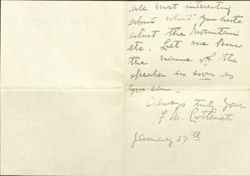 are most interesting
about what you wrote
about the mountains
etc. Let me know
the name of the
speaker as soon as
you can.
Always truly yours
F. W.
January 27th